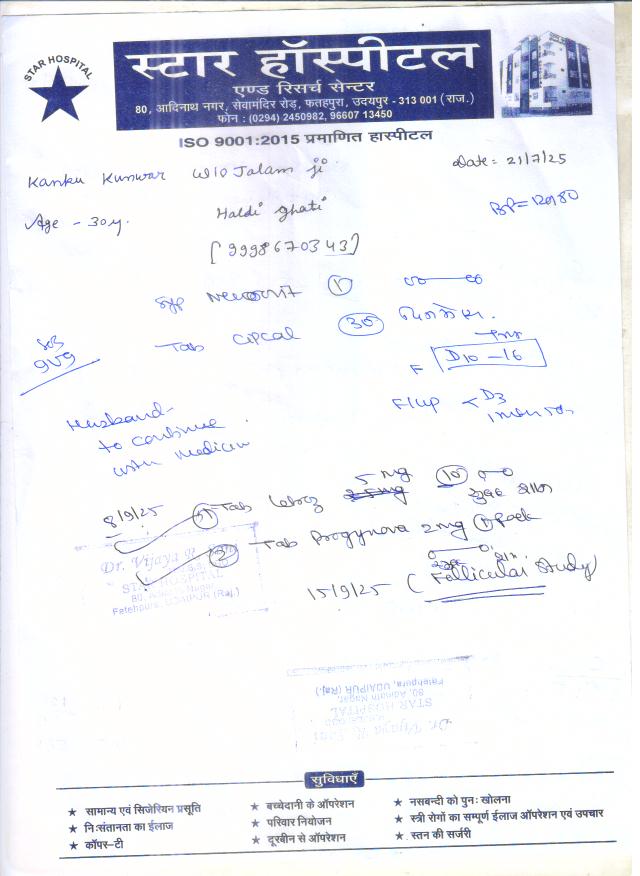 STAR HOSPITAL
स्टार हॉस्पीटल
एण्ड रिसर्च सेन्टर
80, आदिनाथ नगर, सेवामंदिर रोड़, फतहपुरा, उदयपुर - 313 001 (राज.)
फोन : (0294) 2450982, 96607 13450
ISO 9001:2015 प्रमाणित हास्पीटल
Kanku Kunwar W/O Jalam ji
Date = 21/7/25
Age - 30y.
Haldi ghati
BP = 120/80
[9998670343]
Syp 1
Tab CPCal 30
D10 - 16
F/up < D3
Husband
to continue
with medicine
8/9/25 1 Tab 5 mg 10
सुबह शाम
2 Tab Progynova 2mg 1 Pack
15/9/25 (Follicular Study)
Dr. Vijaya R.
STAR HOSPITAL
Fatehpura, UDAIPUR (Raj.)
STAR HOSPITAL
80, Adinath Nagar,
Fatehpura, UDAIPUR (Raj.)
सुविधाएँ
★ सामान्य एवं सिजेरियन प्रसूति ★ बच्चेदानी के ऑपरेशन ★ नसबन्दी को पुनः खोलना
★ निःसंतानता का ईलाज ★ परिवार नियोजन ★ स्त्री रोगों का सम्पूर्ण ईलाज ऑपरेशन एवं उपचार
★ कॉपर-टी ★ दूरबीन से ऑपरेशन ★ स्तन की सर्जरी